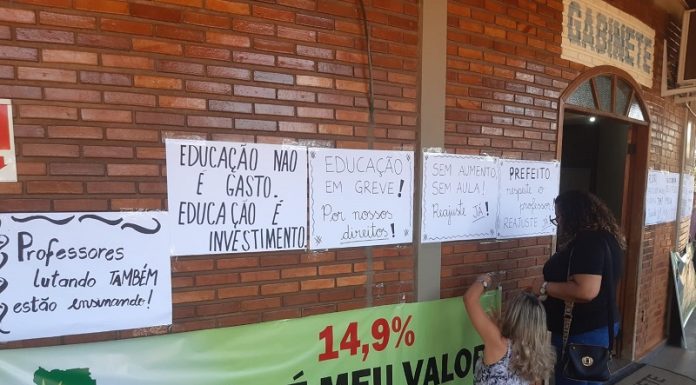 GABINETE
EDUCAÇÃO NÃO
É GASTO.
EDUCAÇÃO É
INVESTIMENTO.
EDUCAÇÃO
EM GREVE!
Por nossos
direitos!
SEM AUMENTO,
SEM AULA!
Reajuste JÁ!
PREFEITO
respeite o
professor,
REAJUSTE
Professores
lutando TAMBÉM
estão ensinando!
14,9%
É MEU VALOR